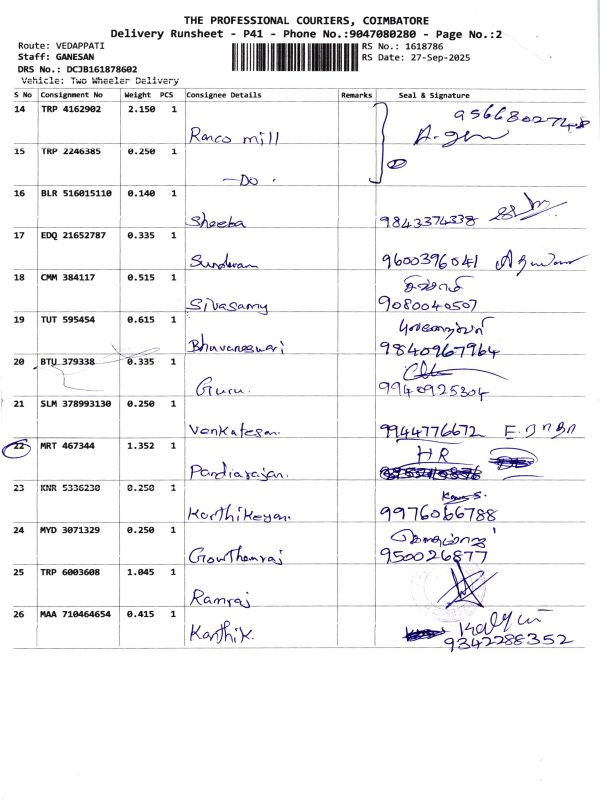 THE PROFESSIONAL COURIERS, COIMBATORE
Delivery Runsheet - P41 - Phone No.:9047080280 - Page No.:2
Route: VEDAPPATI
RS No.: 1618786
Staff: GANESAN
RS Date: 27-Sep-2025
DRS No.: DCJB161878602
Vehicle: Two Wheeler Delivery
S No Consignment No Weight PCS Consignee Details Remarks Seal & Signature
14 TRP 4162902 2.150 1
9566802748
Ranco mill
15 TRP 2246385 0.250 1
-Do.
16 BLR 516015110 0.140 1
Sheeba 9843374338
17 EDQ 21652787 0.335 1
Sundaram 9600396041
18 CMM 384117 0.515 1
Sivasamy 9080040507
19 TUT 595454 0.615 1
Bhuvaneswari 9840967964
20 BTU 379338 0.335 1
Guru. 9940925304
21 SLM 378993130 0.250 1
Venkatesan. 9944776672
22 MRT 467344 1.352 1
HR
Pandiarajan.
23 KNR 5336230 0.250 1
Karthikeyan. 9976066788
24 MYD 3071329 0.250 1
Gowthamraj 950026877
25 TRP 6003608 1.045 1
Ramraj
26 MAA 710464654 0.415 1
Karthik. 9342288352